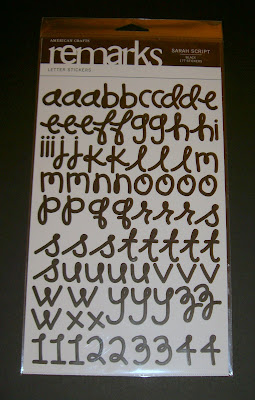 AMERICAN CRAFTS
remarks
LETTER STICKERS
SARAH SCRIPT
BLACK
177 STICKERS
aaabbccdde
eeeffgghhi
iiijjkklllm
mmnnnoooo
ppqqrrrrs
sssstttt
suuuuvvv
wwyyyzz
wxx
1112233444